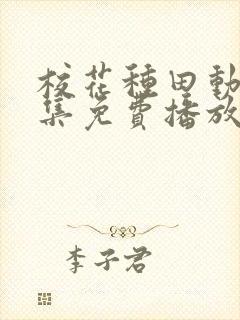 校花種田動
集免費播放
李子君